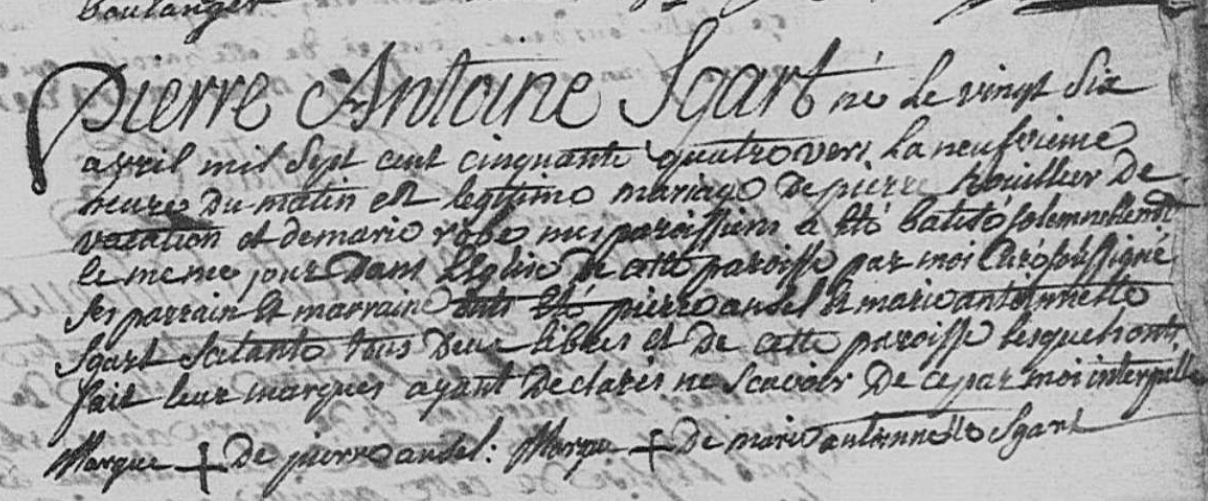 boulanger
Pierre Antoine Sgart né le vingt six
avril mil sept cent cinquante quatre vers la neufvieme
heure du matin et legitime mariage de pierre houillier de
vacation et de marie robe mes paroissiens a été batisé solemnellement
le meme jour dans l'eglise de cette paroisse par moi curé soussigné
ses parrain et marraine ont été pierre ansel et marie antoinnette
Sgart sa tante tous deux libres et de cette paroisse lesquels ont
fait leur marques ayant declarés ne scavoir de ce par moi interpellé
Marque + de pierre ansel : Marque + de marie antoinnette Sgart